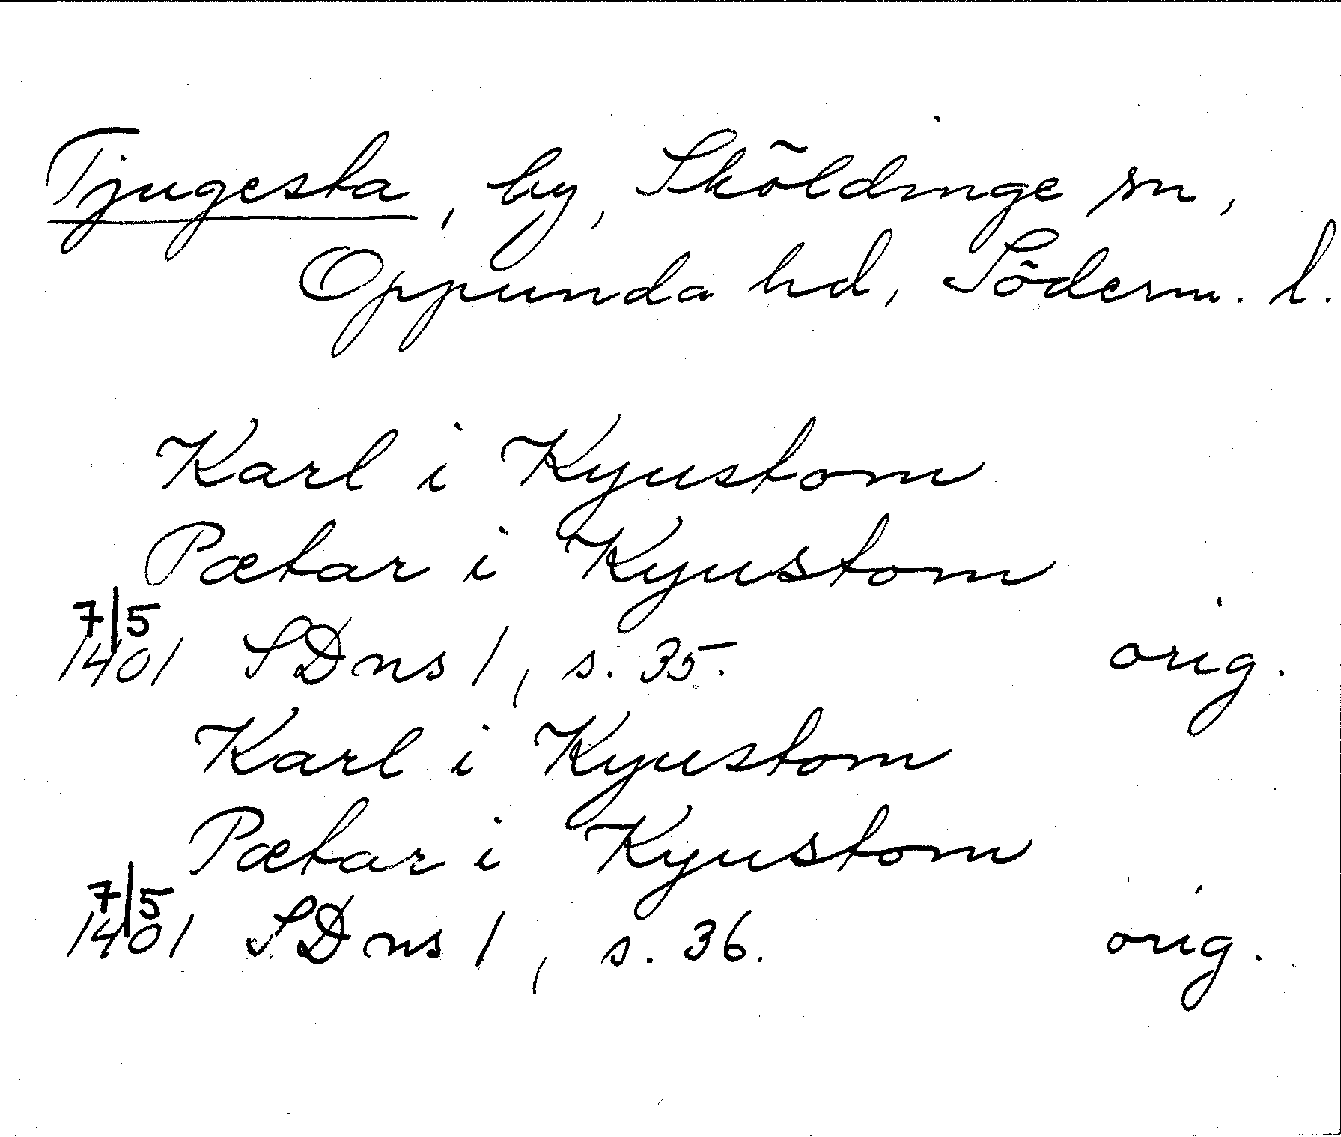 Tjugesta, by, Sköldinge sn,
Oppunda hd, Söderm. l.
Karl i Kyustom
Pætar i Kyustom
7/5
1401 SD ns 1, s. 35. orig.
Karl i Kyustom
Pætar i Kyustom
7/5
1401 SD ns 1, s. 36. orig.